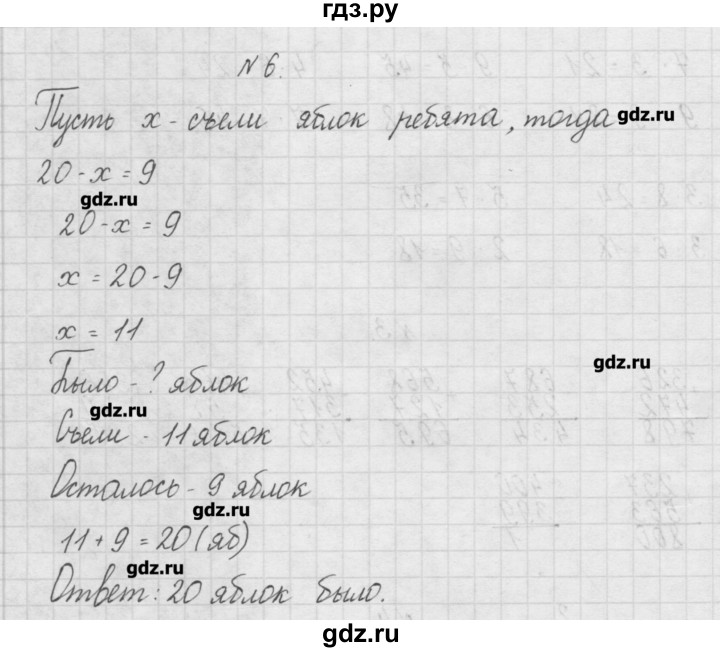 гдз.ру
№6.
Пусть х - съели яблок ребята, тогда
gdz.ru
20 - х = 9
gdz.ru
20 - х = 9
х = 20 - 9
х = 11
gdz.ru
Было - ? яблок
gdz.ru
Съели - 11 яблок
Осталось - 9 яблок
gdz.ru
11 + 9 = 20 (яб)
gdz.ru
Ответ: 20 яблок было.
gdz.ru